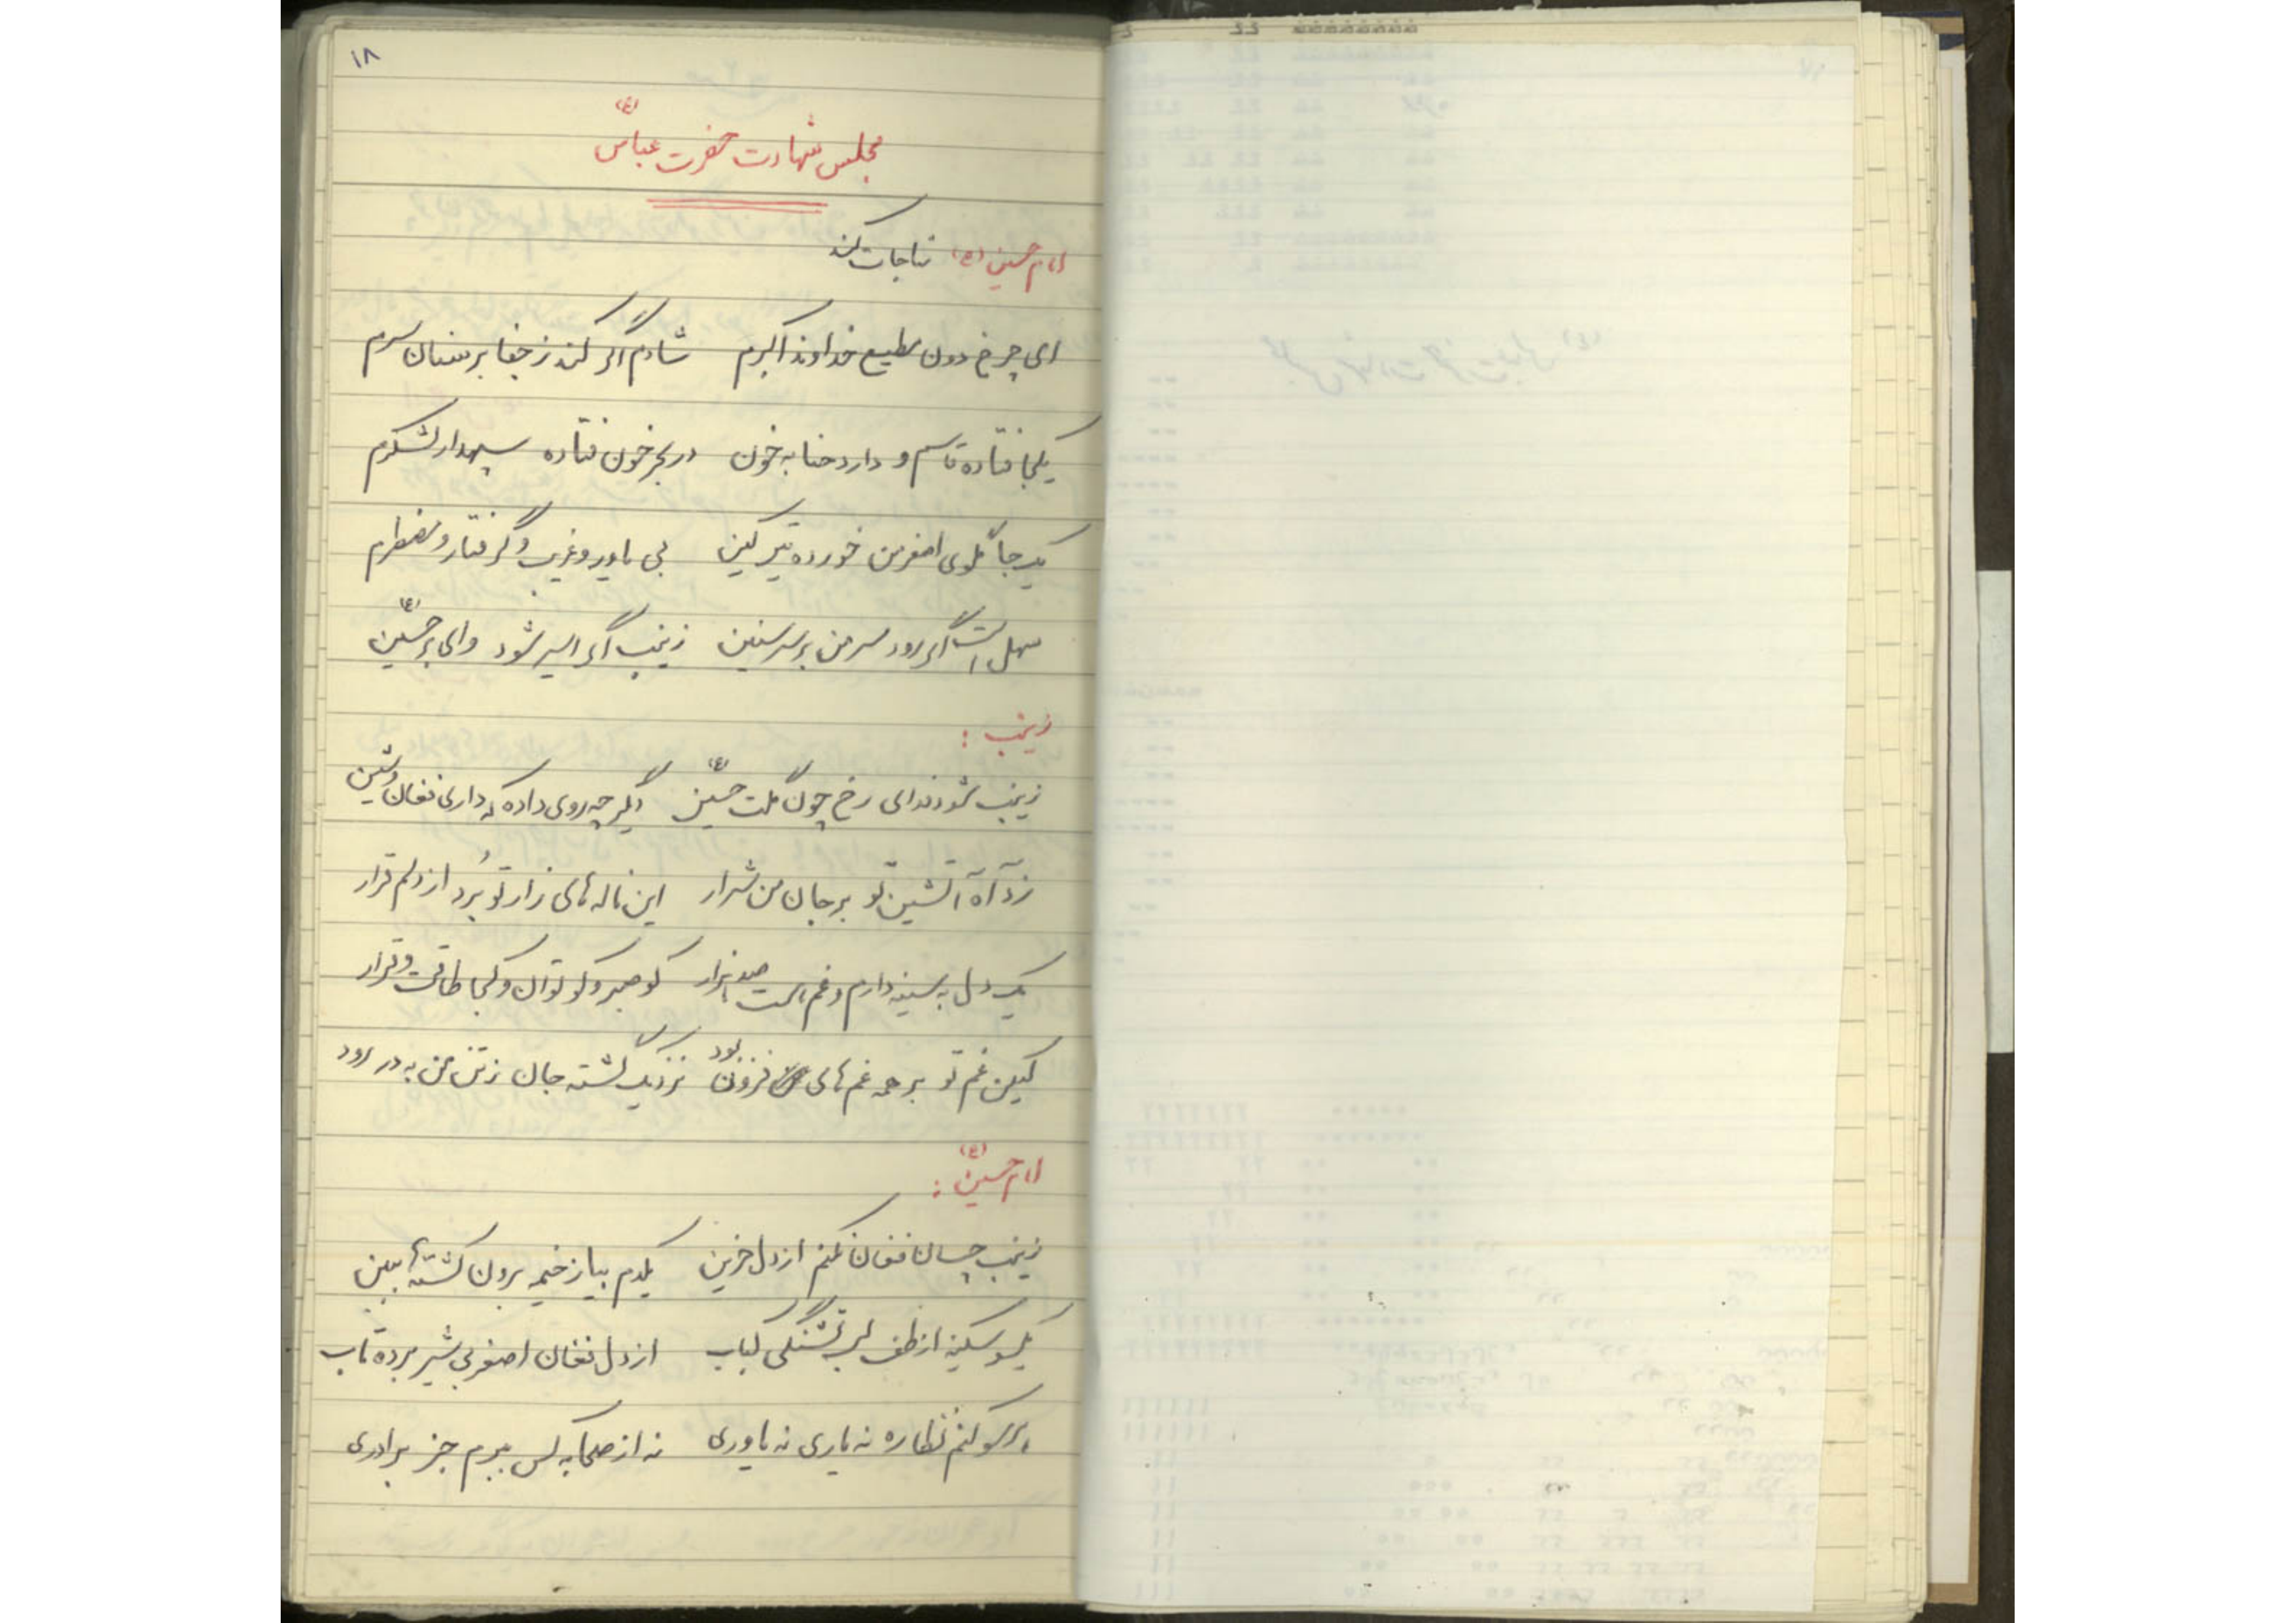 ۱۸
مجلس شهادت حضرت عباس (ع)
امام حسین (ع) مناجات کند
ای چرخ دون مطیع خداوند اکبرم شادم اگر کند ز جفا بر سنان سرم
یکجا فتاده قاسم و دارد حنا به خون در بحر خون فتاده سپهدار لشکرم
یک جا گلوی اصغر من خورده تیر کین بی یاور و غریب و گرفتار و مضطرم
سهل است اگر رود سر من بر سر سنین زینب اگر اسیر شود وای بر حسین (ع)
زینب :
زینب شود فدای رخ چون گلت حسین (ع) دیگر چه روی داده که داری فغان و شین
زد آه آتشین تو بر جان من شرار این ناله های زار تو بُرد از دلم قرار
یک دل به سینه دارم و غم است صد هزار کو صبر و کو توان و کجا طاقت و قرار
لیکن غم تو بر همه غم های فزون بود نزدیک گشته جان ز تن من به در رود
امام حسین (ع) :
زینب چسان فغان نکنم از دل حزین یکدم بیا ز خیمه برون کشته ها ببین
یکسو سکینه از طف لب تشنگی کباب از دل فغان اصغر بی شیر برده تاب
هر سو کنم نظاره نه یاری نه یاوری نه از صحابه کس ببرم جز برادری